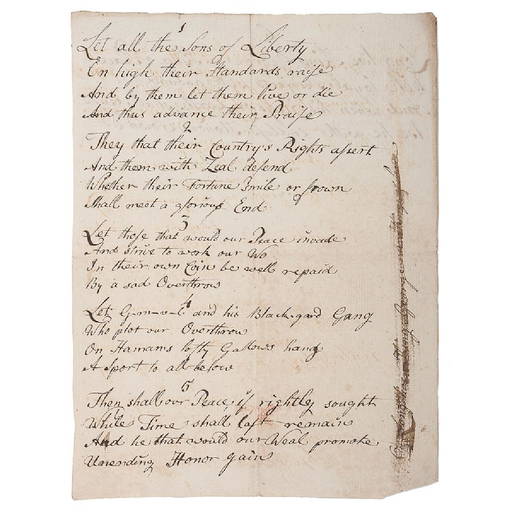 1
Let all the Sons of Liberty
On high their Standards raise
And by them let them live or die
And thus advance their Praise
2
They that their Country's Rights assert
And them with Zeal defend
Whether their Fortune smile or frown
Shall meet a glorious End
3
Let those that would our Peace invade
And strive to work our Wo
In their own Coin be well repaid
By a sad Overthrow
4
Let G-m-v-l and his Black-gard Gang
Who plot our Overthrow
On Hamans lofty Gallows hang
A Sport to all below
5
Then shall our Peace if rightly sought
While Time shall last remain
And he that would our Weal promote
Unending Honor gain